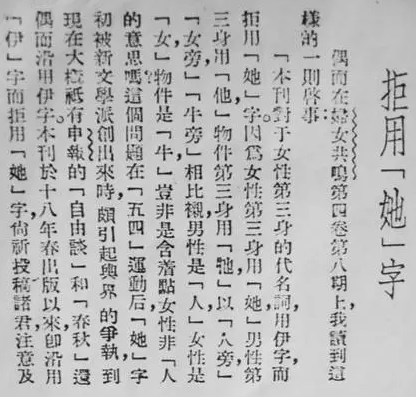 拒用「她」字
偶而在婦女共鳴第四卷第八期上,我讀到這
樣的一則啓事:
「本刊對于女性第三身的代名詞,用伊字,而
拒用「她」字,因爲女性第三身用「她」男性第
三身用「他」物件第三身用「牠」以「人旁」
「女旁」「牛旁」相比襯,男性是「人」,女性是
「女」,物件是「牛」,豈非是含着點女性非「人」
的意思嗎?這個問題在「五四」運動后,「她」字
初被新文學派創出來時,頗引起輿界的爭執,到
現在大槪祗有申報的「自由談」和「春秋」還
偶而沿用伊字,本刊於十八年春出版以來,卽沿用
「伊」字而拒用「她」字,尙祈投稿諸君注意及